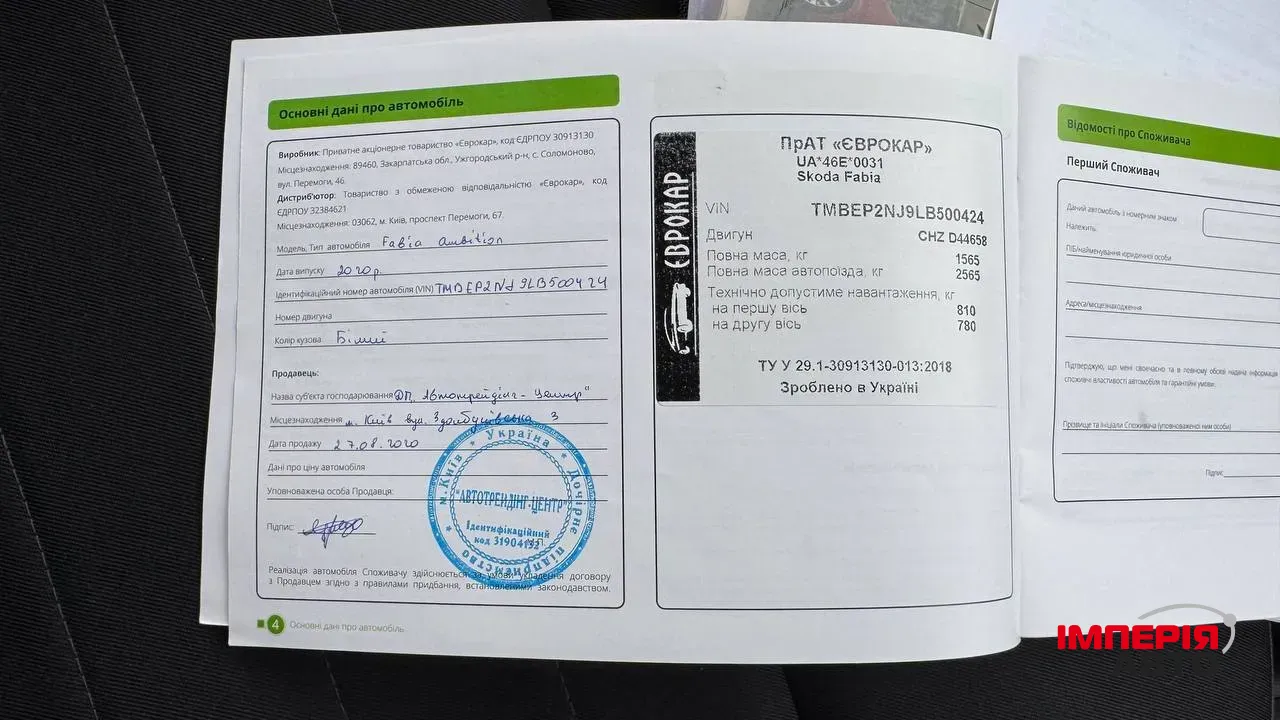 Основні дані про автомобіль
Виробник: Приватне акціонерне товариство «Єврокар», код ЄДРПОУ 30913130
Місцезнаходження: 89460, Закарпатська обл., Ужгородський р-н, с. Соломоново,
вул. Перемоги, 46
Дистриб'ютор: Товариство з обмеженою відповідальністю «Єврокар», код
ЄДРПОУ 32384621
Місцезнаходження: 03062, м. Київ, проспект Перемоги, 67.
Модель, Тип автомобіля Fabia Ambition
Дата випуску 2020 р.
Ідентифікаційний номер автомобіля (VIN) TMBEP2NJ9LB500424
Номер двигуна
Колір кузова Білий
Продавець:
Назва суб'єкта господарювання ДП „Автотрейдінг-Центр"
Місцезнаходження м. Київ вул. Здолбунівська 3
Дата продажу 27.08.2020
Дані про ціну автомобіля
Уповноважена особа Продавця:
Підпис:
М.П.
м. Київ * Україна * Дочірнє підприємство *
"АВТОТРЕЙДІНГ-ЦЕНТР"
Ідентифікаційний
код 31904132
Реалізація автомобіля Споживачу здійснюється за умови укладення договору
з Продавцем згідно з правилами придбання, встановленими законодавством.
4 Основні дані про автомобіль
ЄВРОКАР
ПрАТ «ЄВРОКАР»
UA*46E*0031
Skoda Fabia
VIN TMBEP2NJ9LB500424
Двигун CHZ D44658
Повна маса, кг 1565
Повна маса автопоїзда, кг 2565
Технічно допустиме навантаження, кг
на першу вісь 810
на другу вісь 780
ТУ У 29.1-30913130-013:2018
Зроблено в Україні
Відомості про Споживача
Перший Споживач
Даний автомобіль з номерним знаком
Належить:
ПІБ/найменування юридичної особи
Адреса/місцезнаходження
Підтверджую, що мені своєчасно та в повному обсязі надана інформація
споживчі властивості автомобіля та гарантійні умови.
Прізвище та ініціали Споживача (уповноваженої ним особи)
Підпис
ІМПЕРІЯ